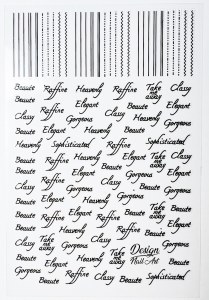 Beaute Raffine Heavenly Raffine Take me away Classy
Beaute Elegant Beaute Elegant
Classy Raffine Heavenly Classy
Gorgeous Elegant Heavenly Beaute Sophisticated
Heavenly Sophisticated Heavenly Elegant
Beaute Raffine Elegant Beaute Take me away Classy
Classy Elegant Heavenly Raffine Elegant
Gorgeous Beaute Gorgeous Classy
Beaute Raffine Classy Gorgeous Beaute
Elegant Beaute Take me away Elegant
Classy Take me away Gorgeous Classy Design Nail Art
Beaute Elegant Take me away
Gorgeous Raffine Classy Beaute Sophisticated